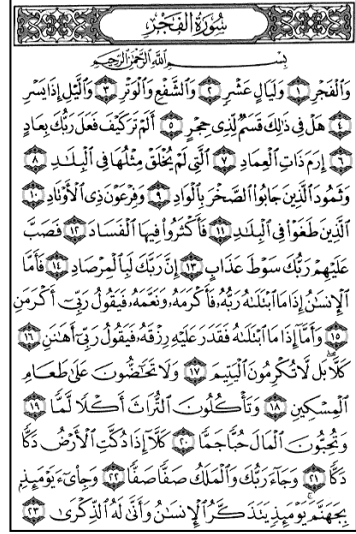 سُورَةُ الفَجْرِ
بِسْمِ اللَّهِ الرَّحْمَٰنِ الرَّحِيمِ
وَالْفَجْرِ ١ وَلَيَالٍ عَشْرٍ ٢ وَالشَّفْعِ وَالْوَتْرِ ٣ وَالَّيْلِ إِذَا يَسْرِ
٤ هَلْ فِي ذَٰلِكَ قَسَمٌ لِّذِي حِجْرٍ ٥ أَلَمْ تَرَ كَيْفَ فَعَلَ رَبُّكَ بِعَادٍ
٦ إِرَمَ ذَاتِ الْعِمَادِ ٧ الَّتِي لَمْ يُخْلَقْ مِثْلُهَا فِي الْبِلَٰدِ ٨
وَثَمُودَ الَّذِينَ جَابُوا الصَّخْرَ بِالْوَادِ ٩ وَفِرْعَوْنَ ذِي الْأَوْتَادِ ١٠
الَّذِينَ طَغَوْا فِي الْبِلَٰدِ ١١ فَأَكْثَرُوا فِيهَا الْفَسَادَ ١٢ فَصَبَّ
عَلَيْهِمْ رَبُّكَ سَوْطَ عَذَابٍ ١٣ إِنَّ رَبَّكَ لَبِالْمِرْصَادِ ١٤ فَأَمَّا
الْإِنسَٰنُ إِذَا مَا ابْتَلَىٰهُ رَبُّهُ فَأَكْرَمَهُ وَنَعَّمَهُ فَيَقُولُ رَبِّي أَكْرَمَنِ
١٥ وَأَمَّا إِذَا مَا ابْتَلَىٰهُ فَقَدَرَ عَلَيْهِ رِزْقَهُ فَيَقُولُ رَبِّي أَهَٰنَنِ ١٦
كَلَّا بَل لَّا تُكْرِمُونَ الْيَتِيمَ ١٧ وَلَا تَحَٰضُّونَ عَلَىٰ طَعَامِ
الْمِسْكِينِ ١٨ وَتَأْكُلُونَ التُّرَاثَ أَكْلًا لَّمًّا ١٩
وَتُحِبُّونَ الْمَالَ حُبًّا جَمًّا ٢٠ كَلَّا إِذَا دُكَّتِ الْأَرْضُ دَكًّا
دَكًّا ٢١ وَجَاءَ رَبُّكَ وَالْمَلَكُ صَفًّا صَفًّا ٢٢ وَجِايءَ يَوْمَئِذٍ
بِجَهَنَّمَ يَوْمَئِذٍ يَتَذَكَّرُ الْإِنسَٰنُ وَأَنَّىٰ لَهُ الذِّكْرَىٰ ٢٣